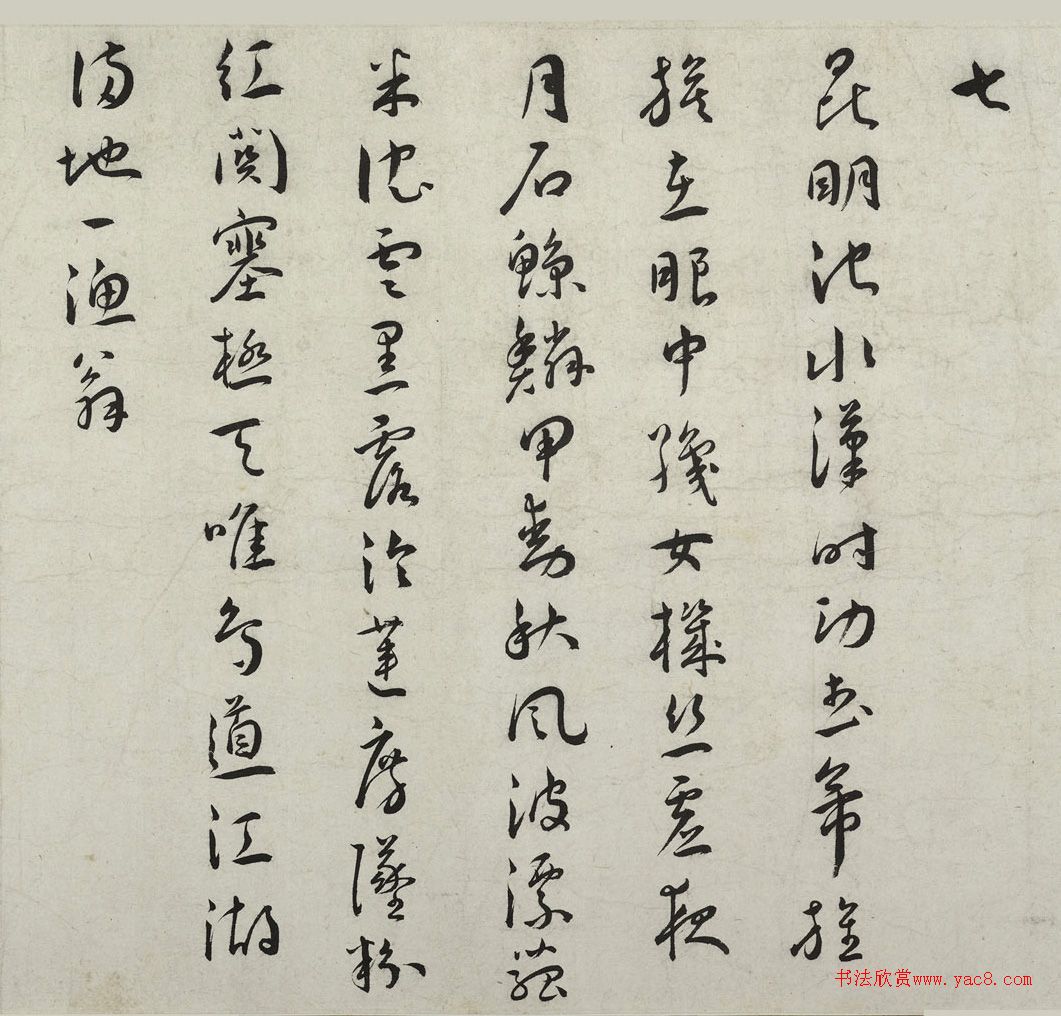 七
昆明池水漢時功武帝旌
旗在眼中織女機絲虛夜
月石鯨鱗甲動秋風波漂菰
米沈雲黑露冷蓮房墜粉
紅關塞極天唯鳥道江湖
滿地一漁翁
书法欣赏www.yac8.com